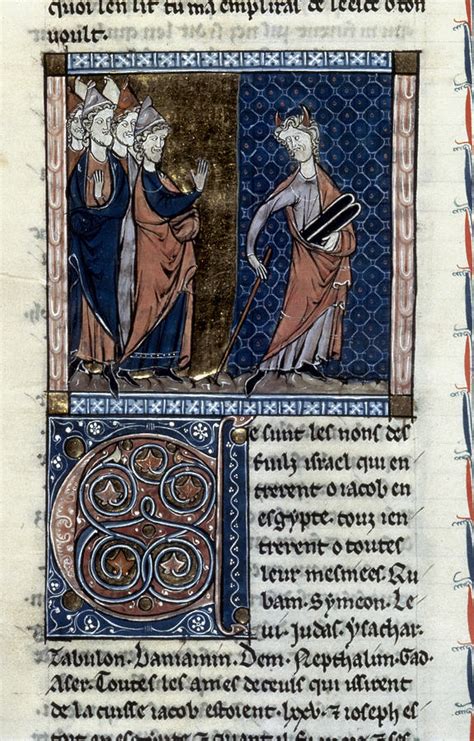 quoi len lit tu ma emplirai de o ton
uoult.
Ce sunt les nons des
fiulz israel qui en
trerent o iacob en
esgypte. touz ien
trerent o toutes
leur mesmees. Ru
bain. Symeon. Le
ui. Judas. Ysachar.
Zabulon. Baniamin. Dem. Nepthalim. Gad.
Aser. Toutes les ames deceus qui issirent
de la cuisse iacob estoient .lxxv. ⁊ ioseph es
toit en esgypte ⁊ quant il fu mors ⁊ ses